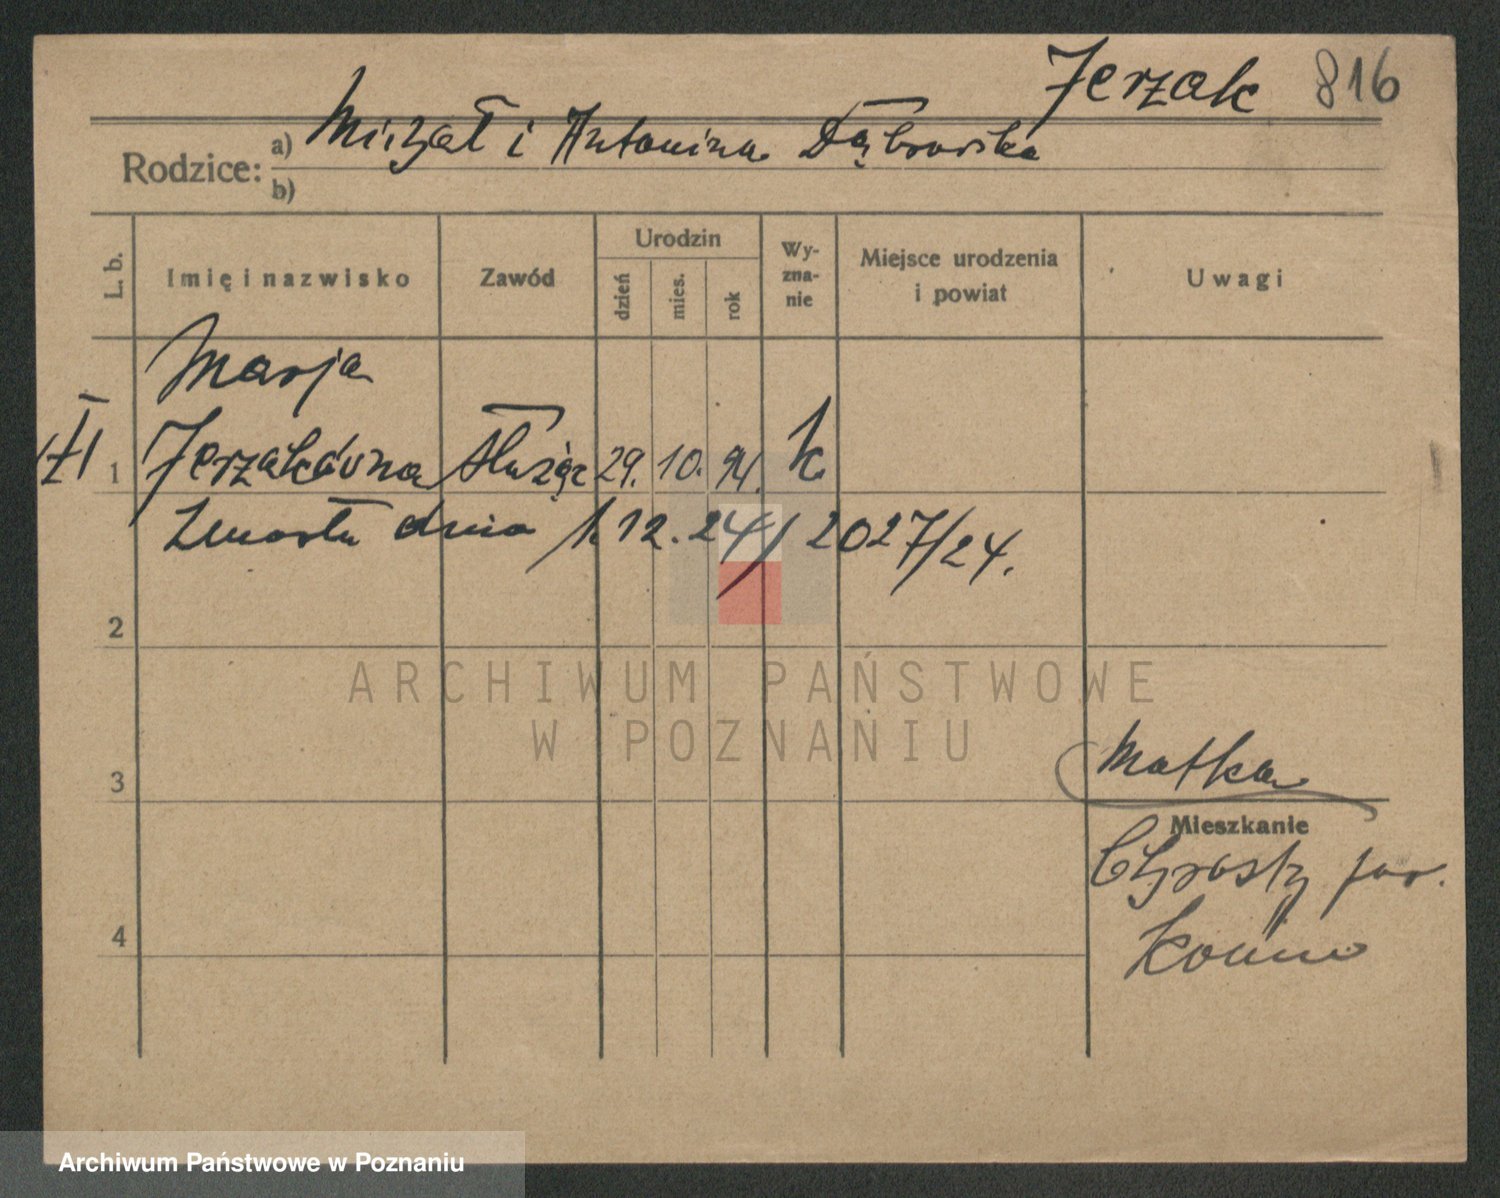 Jerzak 816
Rodzice: a) Michał i Antonina Dąbrowska
b)
L. b. Imię i nazwisko Zawód Urodzin dzień mies. rok Wy-zna-nie Miejsce urodzenia i powiat Uwagi
Marja
1 Jerzakówna służąc 29. 10. 94. k
Zmarła dnia 1.12.24 / 2027/24.
2
ARCHIWUM PAŃSTWOWE
W POZNANIU
Matka
3
Mieszkanie
Chrosty pow.
4
Archiwum Państwowe w Poznaniu